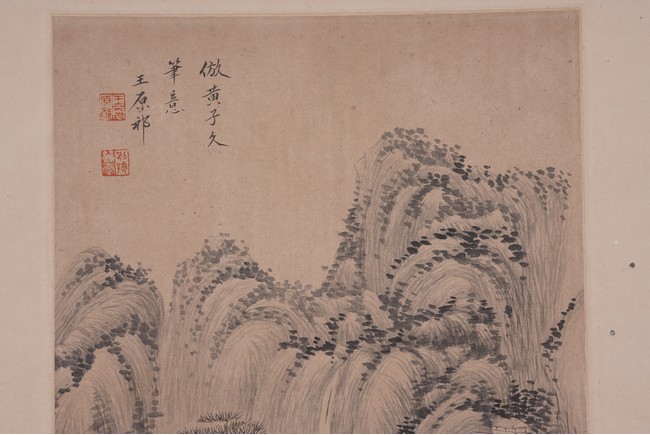 倣黃子久
筆意
王原祁